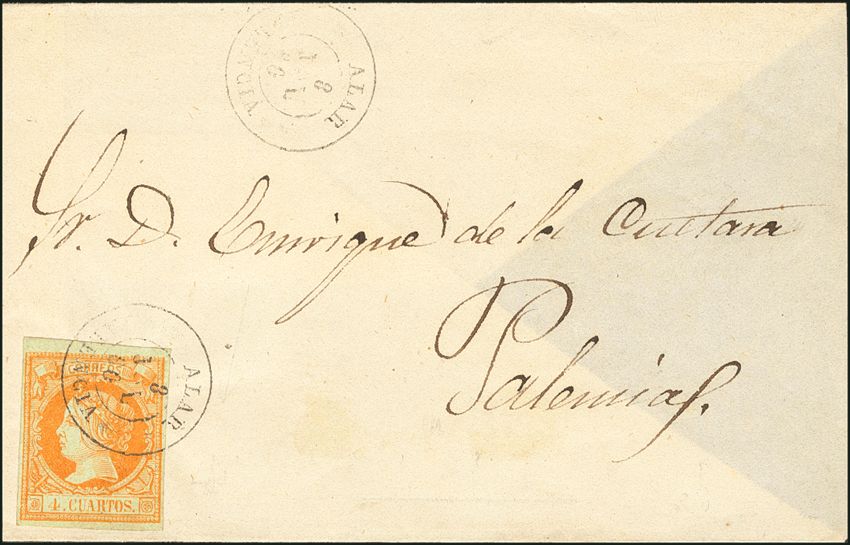 ALAR
8
Sr. D. Enrique de la Cuetara
Palencia
ALAR
8
CORREOS
4. CUARTOS.